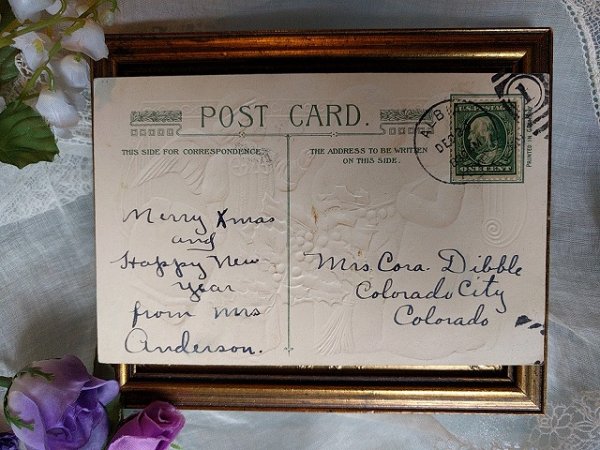 POST CARD.
THIS SIDE FOR CORRESPONDENCE.
THE ADDRESS TO BE WRITTEN
ON THIS SIDE.
Merry Xmas
and
Happy New
Year
from Mrs
Anderson.
Mrs. Cora. Dibble
Colorado City
Colorado
DEC
1
ONE CENT
PRINTED IN